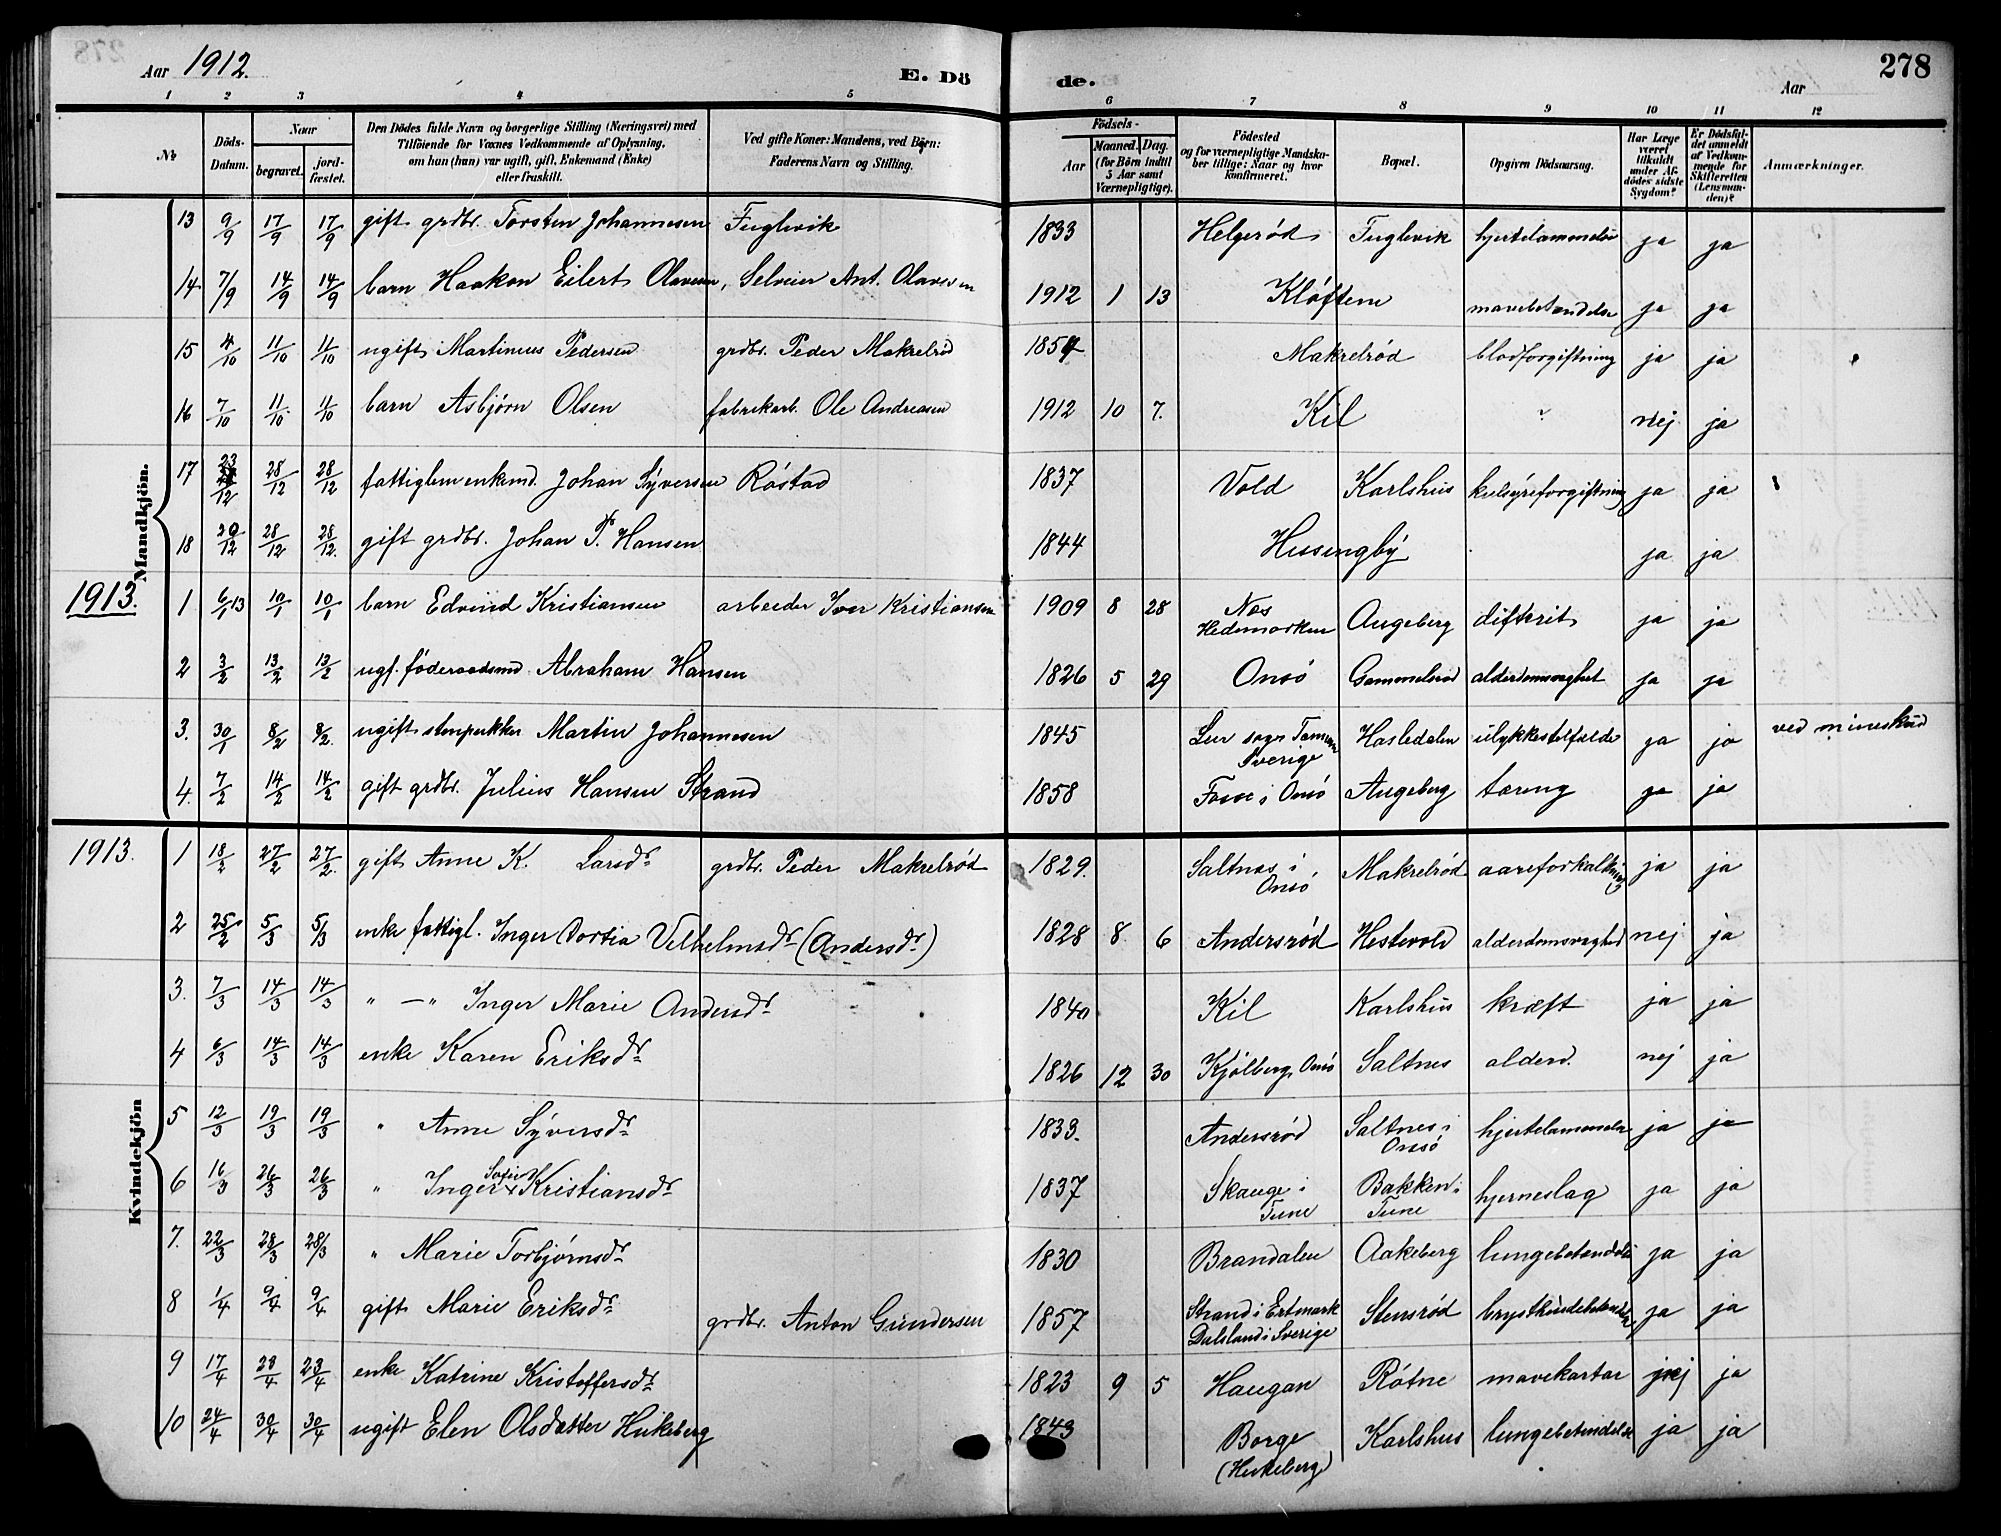 278
Aar 1912.
E. Dö de.
Aar
1 2 3 4 5 6 7 8 9 10 11 12
No.
Döds-Datum.
Naar
begravet.
jord-fæstet.
Den Dödes fulde Navn og borgerlige Stilling (Næringsvei) med
Tilföiende for Voxnes Vedkommende af Oplysning,
om han (hun) var ugift, gift, Enkemand (Enke)
eller fraskilt.
Ved gifte Koner: Mandens, ved Börn:
Faderens Navn og Stilling.
Födsels-
Aar
Maaned. Dag.
(for Börn indtil
5 Aar samt
Værnepligtige).
Födested
og for værnepligtige Mandska-
ber tillige: Naar og hvor
konfirmeret.
Bopæl.
Opgiven Dödsaarsag.
Har Læge
været
tilkaldt
under Af-
dödes sidste
Sygdom?
Er Dödsfal-
det anmeldt
af Vedkom-
mende for
Skifteretten
(Lensman-
den)?
Anmærkninger.
Mandkjön.
13 9/9 17/9 17/9 gift grdbr. Torsten Johannesen Fuglevik 1833 Helgerød Fuglevik hjertelammelse ja ja
14 7/9 14/9 14/9 barn Haakon Eilert Olavesen, Selveier Ant. Olavesen 1912 1 13 Kløftene mavebetændelse ja ja
15 4/10 11/10 11/10 ugift Martinius Pedersen grdbr. Peder Makrelrød 1854 Makrelrød blodforgiftning ja ja
16 7/10 11/10 11/10 barn Asbjørn Olsen fabrikarb. Ole Andreasen 1912 10 7. Kil ? nej ja
17 23/12 28/12 28/12 fattiglem enkemd. Johan Syversen Röstad 1837 Vold Karlshus kulsyreforgiftning ja ja
18 20/12 28/12 28/12. gift grdbr. Johan P. Hansen 1844 Husengby ja ja
1913.
1 6/1 13 10/1 10/1 barn Edvind Kristiansen arbeider Iver Kristiansen 1909 8 28 Nes Hedemarken Augeberg difterit ja ja
2 3/2 13/2 13/2 ugf. föderaadsmd. Abraham Hansen 1826 5 29 Onsö Gammelsrød alderdomsvaghet ja ja
3. 30/1 8/2 8/2. ugift stenpukker Martin Johannesen 1845 Lur sogn Sverige Hasledalen ulykkestilfælde ja ja ved mineskud
4. 7/2 14/2 14/2 gift grdbr. Julius Hansen Strand 1858 i Onsö Augeberg tæring ja ja
Kvindekjön
1913.
1 18/2 27/2 27/2. gift Anne K. Larsdr. grdbr. Peder Makrelrød 1829. Saltnes i Onsö Makrelrød aareforkalkning ja ja
2 25/2 5/3 5/3 enke fattigl. Inger Dortia Velhelmsdr. (Andersdr.) 1828 8 6 Andersrød Hestevold alderdomsvaghed nej ja
3. 7/3 14/3 14/3 " — " Inger Marie Andersdr. 1840 Kil Karlshus kræft ja ja
4 6/3 14/3 14/3 enke Karen Eriksdr. 1826 12 30 Kjölberg, Onsö Saltnes alderd. nej ja
5 12/3 19/3 19/3 " Anne Syversdr. 1833. Andersrød Saltnes i Onsö hjertelammelse ja ja
6 16/3 26/3 26/3 " Inger Sofie Kristiansdr. 1837 Skauge i Tune Bakken i Tune hjerneslag ja ja
7. 22/3 28/3 28/3 " Marie Torbjørnsdr. 1830 Brandalen Aakeberg lungebetændelse ja ja
8 1/4 9/4 9/4 gift Marie Eriksdr. grdbr. Anton Gundersen 1857 Strand i Ertmark Dalsland i Sverige Stensrød brysthindebetændelse ja ja
9 17/4 23/4 23/4 enke Katrine Kristoffersdr. 1823 9 5 Haugan Røtne mavekatar nej ja
10 24/4 30/4 30/4 ugift Elen Olsdatter Huikeberg 1843 Borge (Huikeberg) Karlshus lungebetændelse ja ja